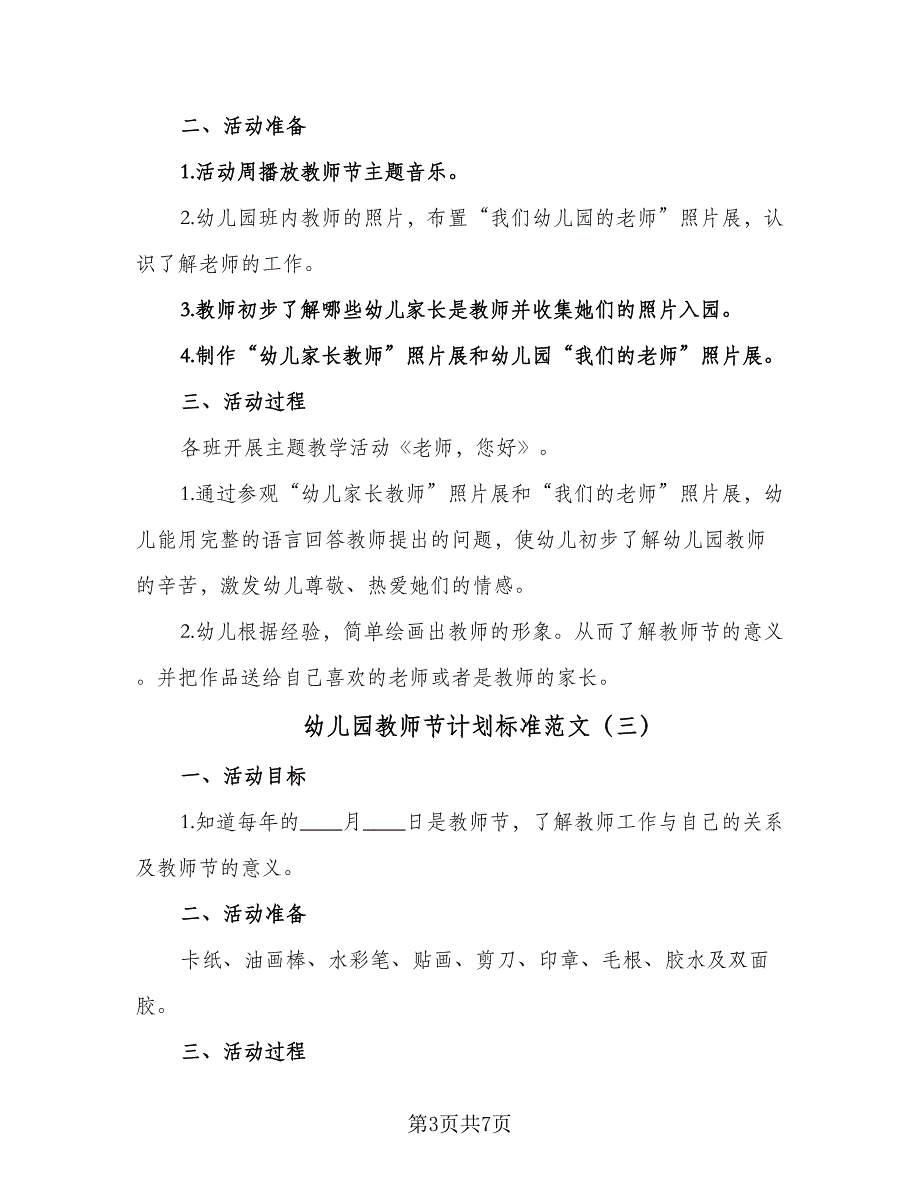 二、活动准备
1.活动周播放教师节主题音乐。
2.幼儿园班内教师的照片，布置“我们幼儿园的老师”照片展，认
识了解老师的工作。
3.教师初步了解哪些幼儿家长是教师并收集她们的照片入园。
4.制作“幼儿家长教师”照片展和幼儿园“我们的老师”照片展。
三、活动过程
各班开展主题教学活动《老师，您好》。
1.通过参观“幼儿家长教师”照片展和“我们的老师”照片展，幼
儿能用完整的语言回答教师提出的问题，使幼儿初步了解幼儿园教师
的辛苦，激发幼儿尊敬、热爱她们的情感。
2.幼儿根据经验，简单绘画出教师的形象。从而了解教师节的意义
。并把作品送给自己喜欢的老师或者是教师的家长。
幼儿园教师节计划标准范文（三）
一、活动目标
1.知道每年的____月____日是教师节，了解教师工作与自己的关系
及教师节的意义。
二、活动准备
卡纸、油画棒、水彩笔、贴画、剪刀、印章、毛根、胶水及双面
胶。
三、活动过程
第3页共7页